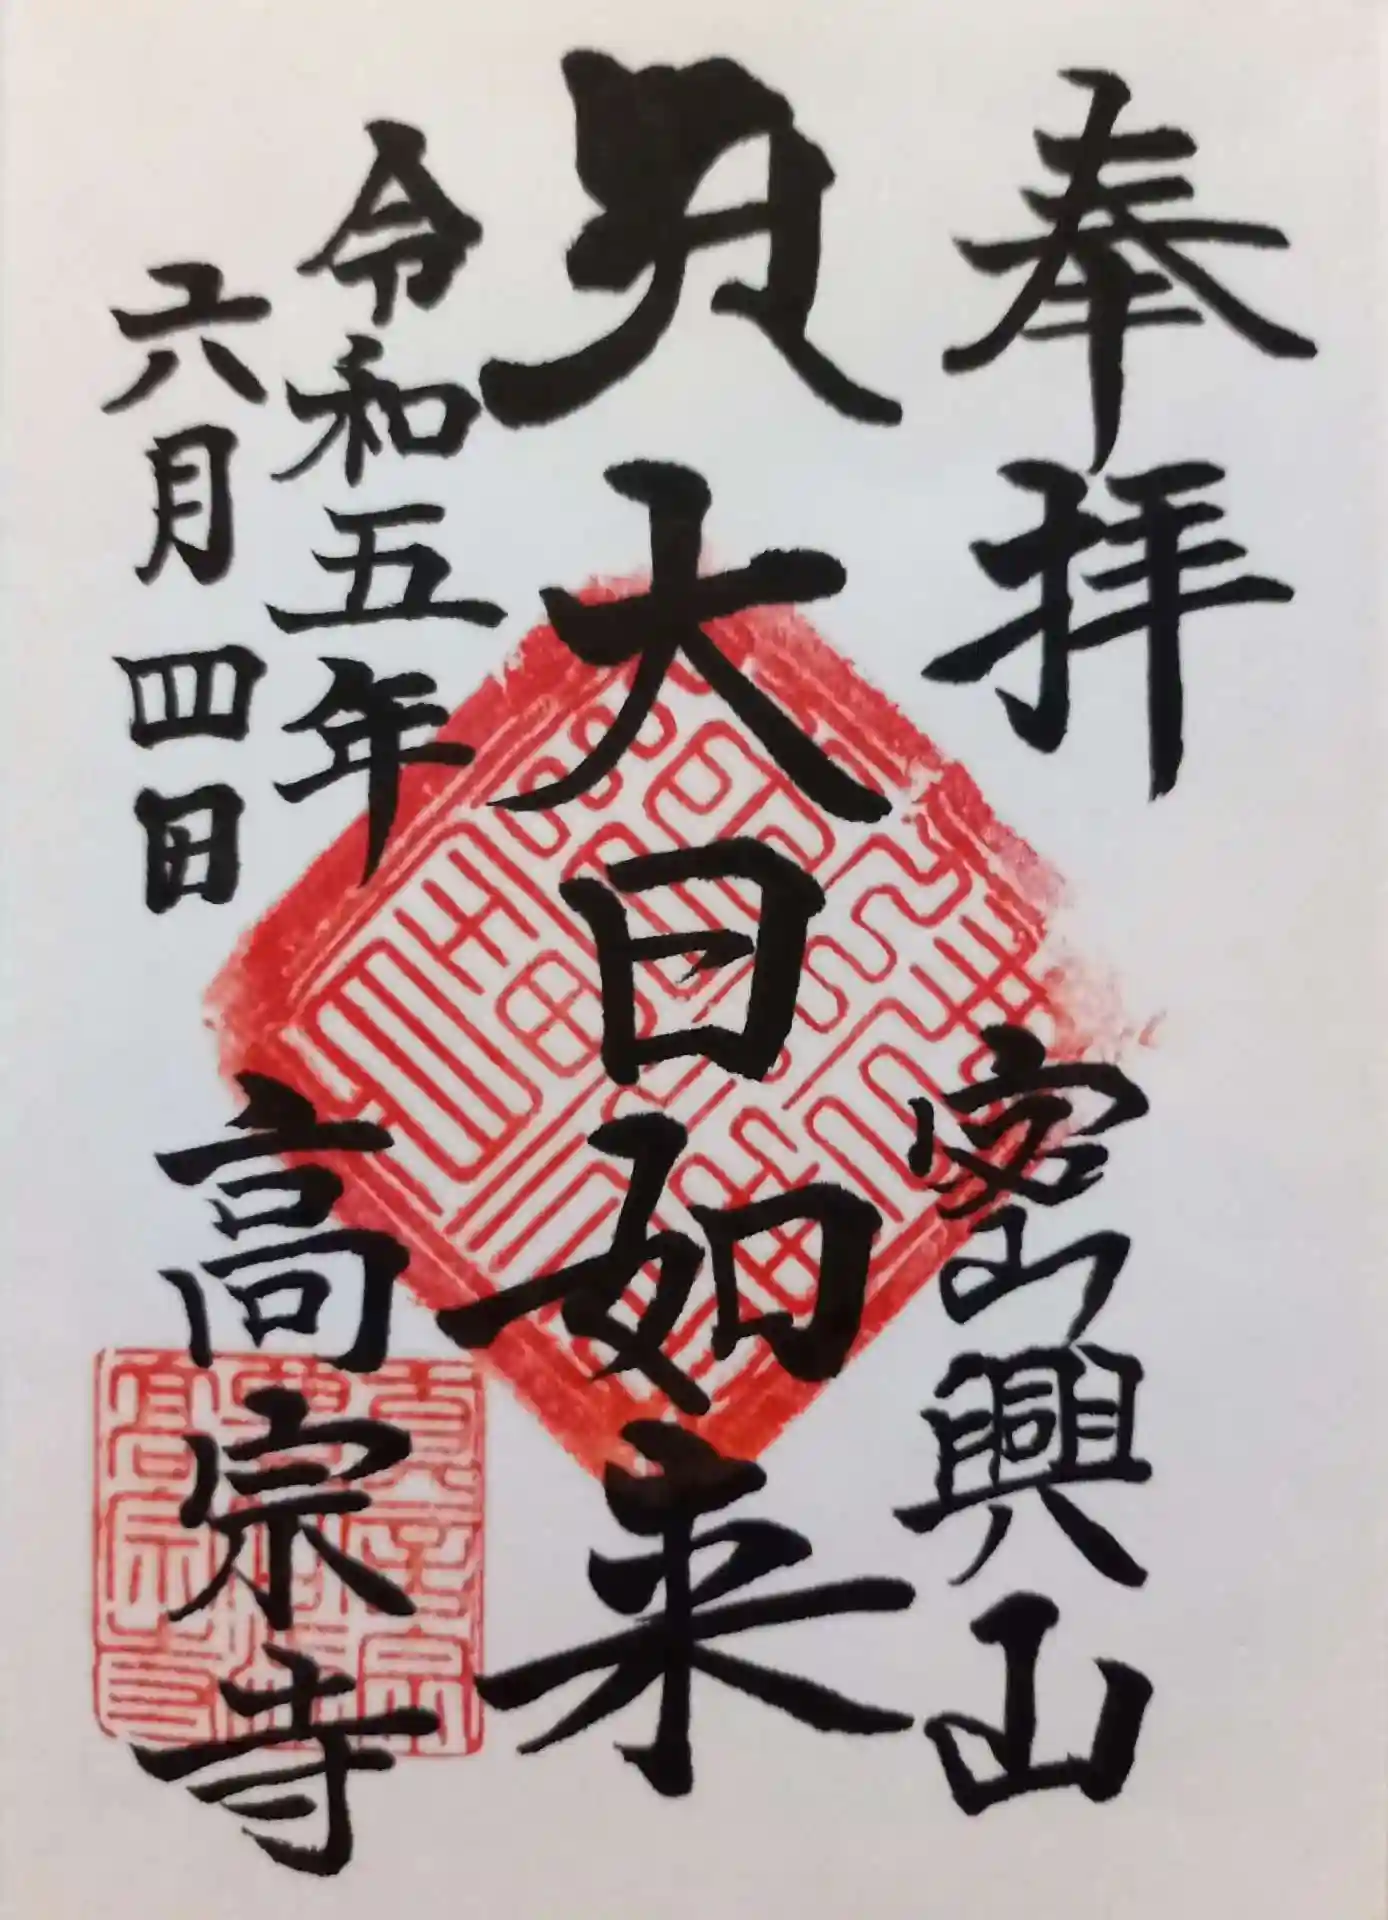 奉拝
密山興山
大日如来
令和五年
六月四日
高宗寺